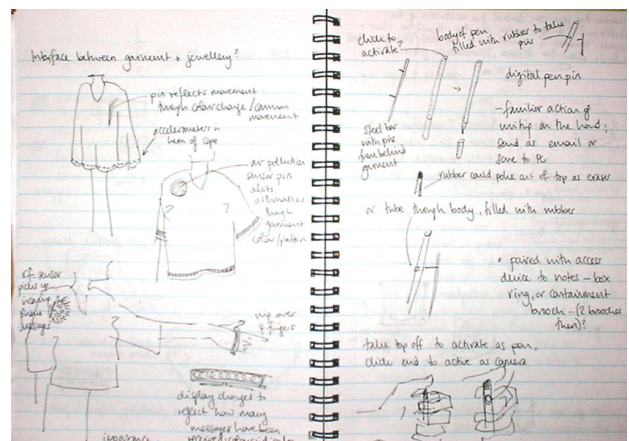 Interface between garment & jewellery?
pin reflects movement
through colour change/
movement
accelerometers in
hem of cape
air pollution
sensor pin
alerts
asthmatics
through
garment
colour/pattern
rf. sensor
picks up
phone
messages
ring over
4 fingers
display changes to
reflect how many
messages have been
click to
activate?
body of pen
filled with rubber to take
pins
digital pen pin
steel bar
with pins
from behind
garment
- familiar action of
writing on the hand;
send as email or
save to PC
rubber could poke out of top as eraser
or tube through body, filled with rubber
• paired with access
device to notes – box
ring, or containment
brooch – (2 brooches
then)?
take top off to activate as pen,
click end to active as camera